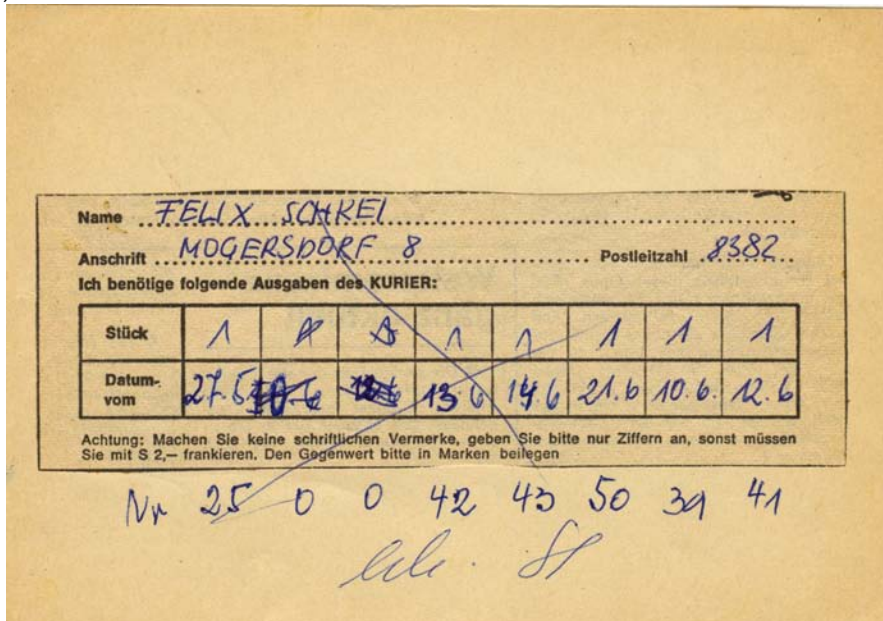 Name FELIX SCHREI
Anschrift MOGERSDORF 8 Postleitzahl 8382
Ich benötige folgende Ausgaben des KURIER:
Stück 1 1 1 1 1 1
Datum- vom 27.5 13.6 14.6 21.6 10.6. 12.6
Achtung: Machen Sie keine schriftlichen Vermerke, geben Sie bitte nur Ziffern an, sonst müssen
Sie mit S 2,— frankieren. Den Gegenwert bitte in Marken beilegen
Nr 25 0 0 42 43 50 39 41